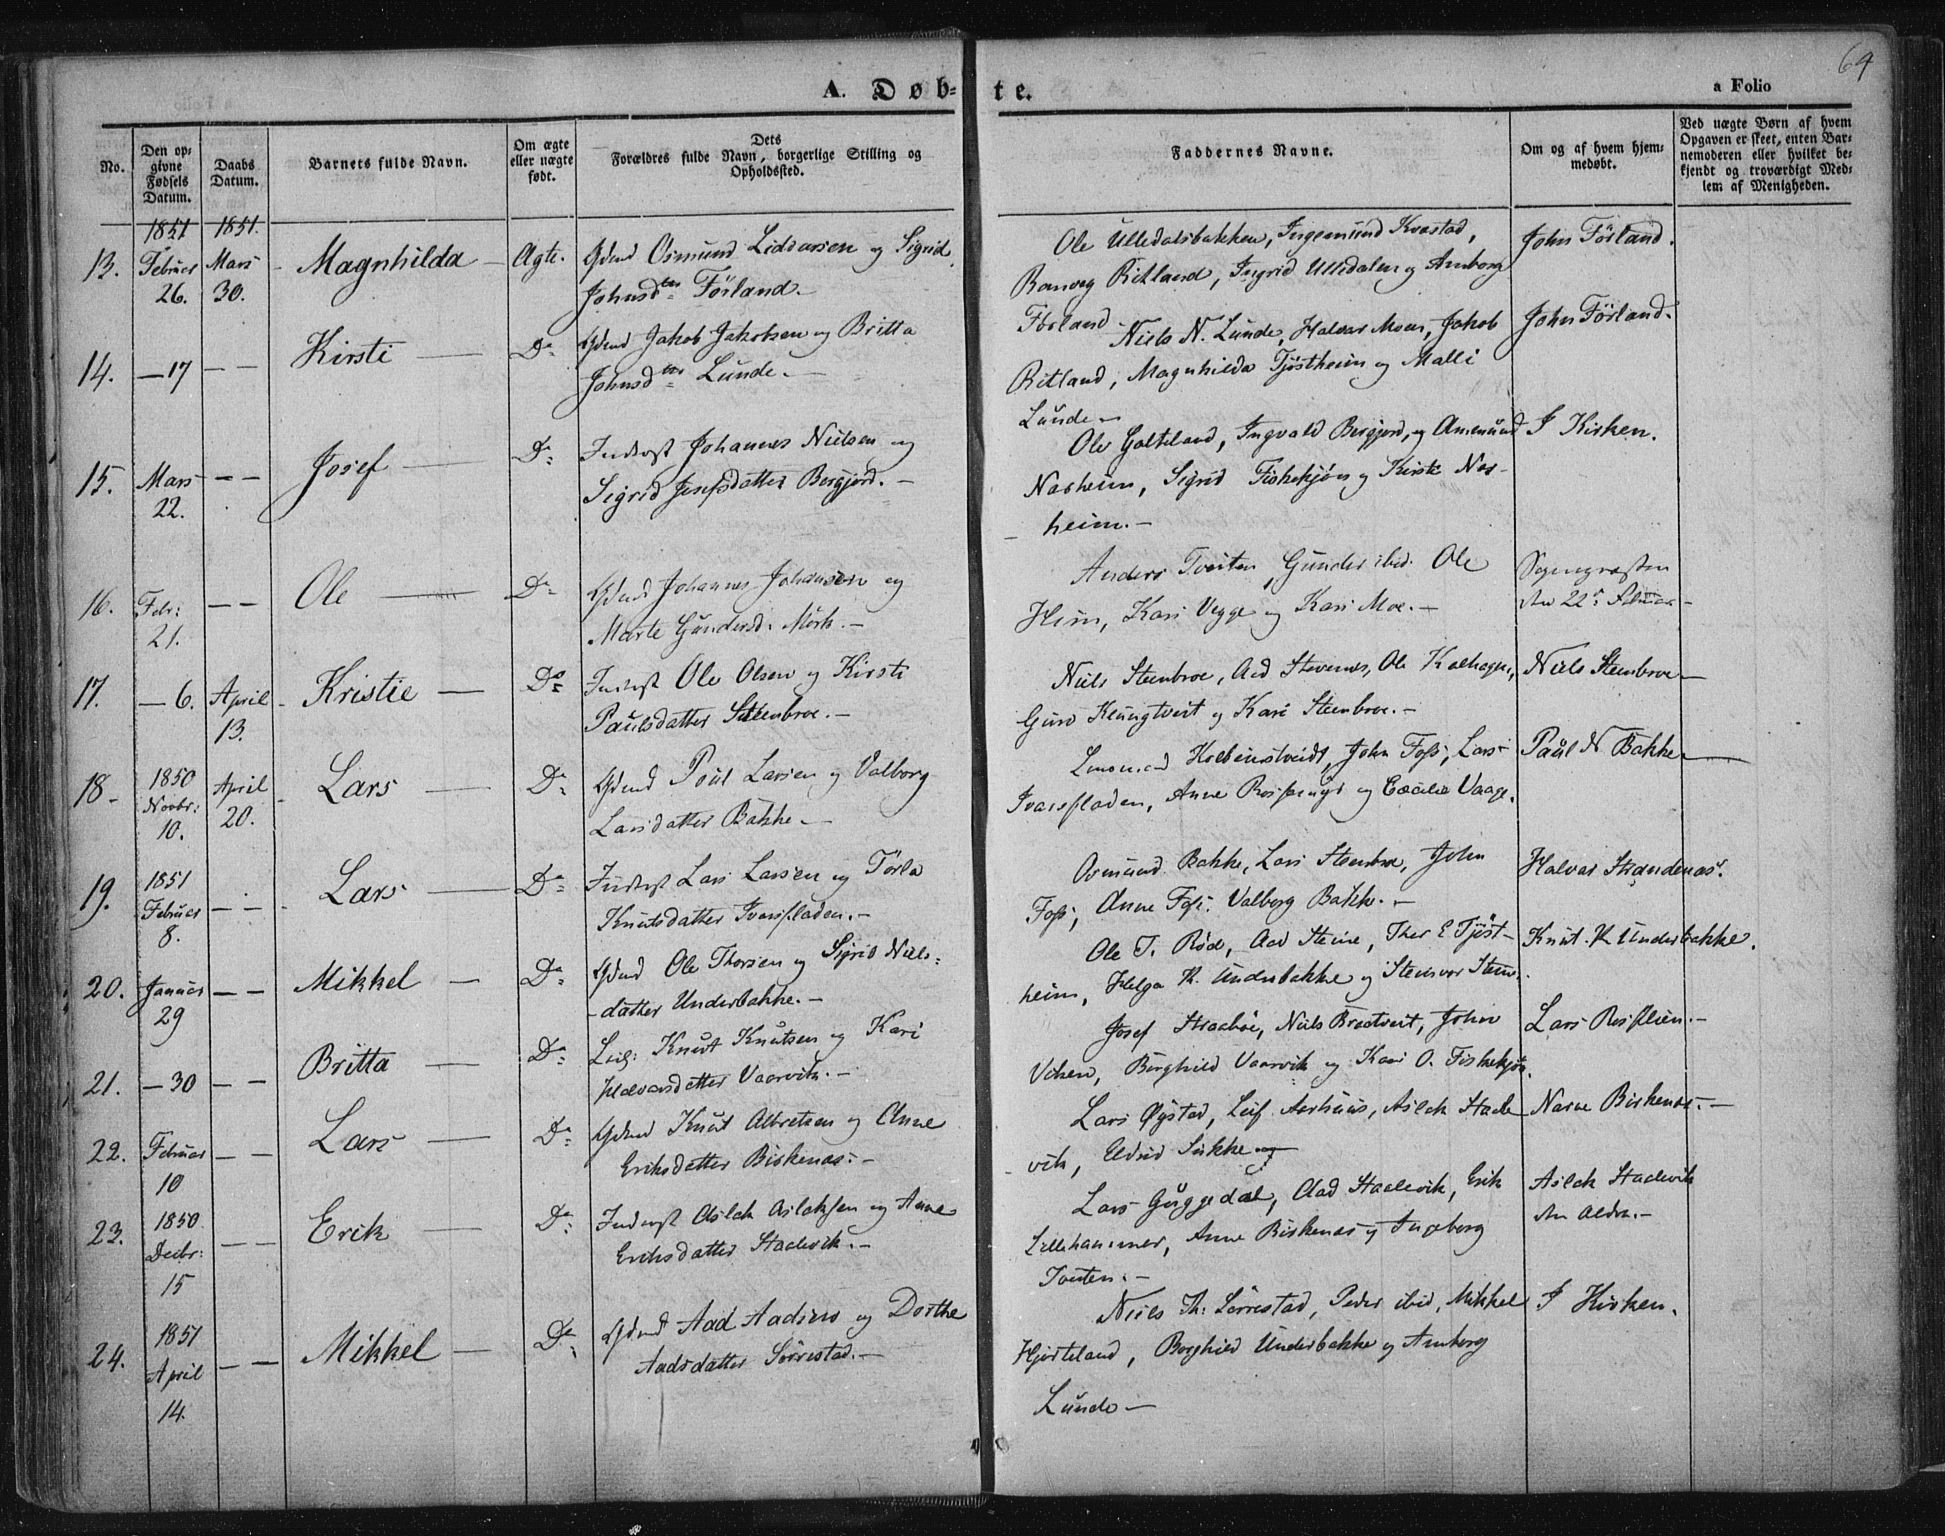 64
A. Døb-te.
a Folio
No.
Den op-
givne
Fødsels
Datum.
Daabs
Datum.
Barnets fulde Navn.
Om ægte
eller uægte
født.
Dets
Forældres fulde Navn, borgerlige Stilling og
Opholdssted.
Faddernes Navne.
Om og af hvem hjem-
medøbt.
Ved uægte Børn af hvem
Opgaven er skeet, enten Bar-
nemoderen eller hvilket be-
kjendt og troværdigt Med-
lem af Menigheden.
1851 1851.
13. Februar 26. Mars 30. Magnhilda Ægte. Gdmd Osmund Liddarsen og Sigrid
Johnsdtr Førland.
Ole Ulledalsbakken, Ingemund Kvastad,
Ranveg Ritland, Ingrid Ulledalen og Amborg
Førland
John Førland.
14. — 17 — — Kirsti — Do Gdmd Jakob Jakobsen og Britta
Johnsdtr Lunde. —
Niels N. Lunde, Halvar Moen, Jakob
Ritland, Magnhilda Tjøstheim og Malli
Lunde —
John Førland.
15. Mars 22. — — Josef — Do Inderst Johannes Nielsen og
Sigrid Josefsdatter Bergjord. —
Ole Galteland, Ingvald Bergjord, og Amemund
Nasheim, Sigrid Fiskekjøn og Kirsti Nas-
heim. —
I Kirken.
16. Febr: 21. — — Ole — Do Gdmd Johannes Johansen og
Marte Gundersd. Mørk. —
Anders Tveiten, Gunder ibid. Ole
Heim, Kari Vegge og Kari Moe. —
Sognepræsten
den 22de Februar —
17. — 6. April 13. Kristie — Do Inderst Ole Olsen og Kirsti
Paulsdatter Steenbroe. —
Niels Steenbroe, Aad Stevenes, Ole Kalhagen,
Guro Klungtveit og Kari Steenbroe. —
Niels Steenbroe —
18. 1850 Novbr: 10. April 20. Lars — Do Gdmd Poul Larsen og Valborg
Larsdatter Bakke. —
Kolbeinstveidt, John Foss, Lars
Ivarsfladen, Anne og Cæcilia Vaage.
Paul N Bakke —
19. 1851 Februar 8. — — Lars — Do Inderst Lars Larsen og Tørla
Knutsdatter Ivarsfladen. —
Osmund Bakke, Lars Steenbroe, John
Foss, Anne Foss. Valborg Bakke. —
Halvar Strandenæs.
20. Januar 29 — — Mikkel — Do Gdmd Ole Thorsen og Sigrid Niels-
datter Underbakke. —
Ole T. Rød, Aad Steine, Ther E Tjøst-
heim, Helga K. Underbakke og Steinvor Steine.
Knut K Underbakke.
21. — 30 — — Britta — Do Leil: Knut Knutsen og Kari
Halvarsdatter Vaarvik. —
Josef Straabøe, Niels Brattveit, John
Viken, Borghild Vaarvik og Kari O. Fiskekjøn.
Lars Rosflien. —
22. Februar 10 — — Lars — Do Gdmd Knut Albretsen og Anne
Eriksdatter Birkenæs. —
Lars Øystad, Leif Aarhuus, Aslak Staale-
vik, Eldrid Sukke og
Narve Birkenæs. —
23. 1850 Decbr: 15 — — Erik — Do Inderst Aslak Aslaksen og Anne
Eriksdatter Staalevik. —
Lars Guggedal, Aad Staalevik, Erik
Lillehammer, Anne Birkenæs og Ingeborg
Tveiten. —
Aslak Staalevik
den Ældre. —
24. 1851 April 14. — — Mikkel — Do Gdmd Aad Aadsen og Dorthe
Aadsdatter Sørrestad. —
Niels Th: Sørrestad, Peder ibid, Mikkel
Hjorteland, Borghild Underbakke og Amborg
Lunde —
I Kirken.